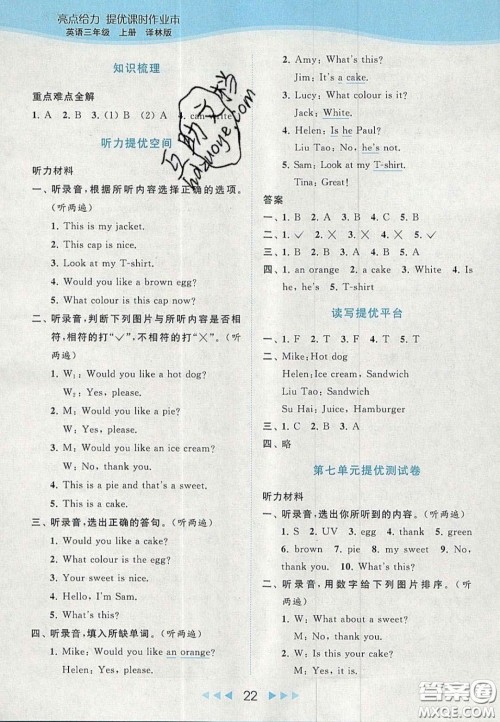 亮点给力 提优课时作业本
英语三年级 上册 译林版
知识梳理
重点难点全解
1. A 2. B 3. (1) B (2) A 4. can write
听力提优空间
听力材料
一、听录音,根据所听内容选择正确的选项。
(听两遍)
1. This is my jacket.
2. This cap is nice.
3. Look at my T-shirt.
4. Would you like a brown egg?
5. What colour is this cap now?
二、听录音,判断下列图片与所听内容是否相
符,相符的打“✓”,不相符的打“✕”。(听
两遍)
1. W₁: Would you like a hot dog?
W₂: Yes, please.
2. M: Would you like a pie?
W: Yes, please.
3. M: Would you like an ice cream?
W: No, thank you.
4. This is a pie and that's a sweet.
5. This is a cake.
三、听录音,选出正确的答句。(听两遍)
1. Would you like a cake?
2. What's that?
3. What colour is the cake?
4. Hello, I'm Sam.
5. What's this?
四、听录音,填入所缺单词。(听两遍)
1. Mike: Would you like an orange?
Helen: Yes, please.
2. Amy: What's this?
Jim: It's a cake.
3. Lucy: What colour is it?
Jack: White.
4. Helen: Is he Paul?
Liu Tao: No, he isn't.
5. Sam: Look at my T-shirt.
Tina: Great!
答案
一、1. B 2. B 3. A 4. A 5. B
二、1. ✓ 2. ✕ 3. ✕ 4. ✕ 5. ✓
三、1. B 2. B 3. A 4. C 5. A
四、1. an orange 2. a cake 3. White 4. Is
he, he isn't 5. T-shirt
读写提优平台
一、1. F 2. T 3. T 4. F 5. T
二、Mike: Hot dog
Helen: Ice cream, Sandwich
Liu Tao: Sandwich
Su Hai: Juice, Hamburger
三、1. C 2. A 3. C 4. B 5. A
四、略
第七单元提优测试卷
听力材料
一、听录音,选出你所听到的内容。(听两遍)
1. S 2. UV 3. egg 4. thank 5. green
6. brown 7. pie 8. sweet 9. No,
thank you. 10. What's this?
二、听录音,用数字给下列图片排序。(听两遍)
1. W: What about a sweet?
M: No, thank you.
2. W: What's this?
M: It's a cake.
22
互助文档
hdzuoye.com
答案圈
MXQE.COM